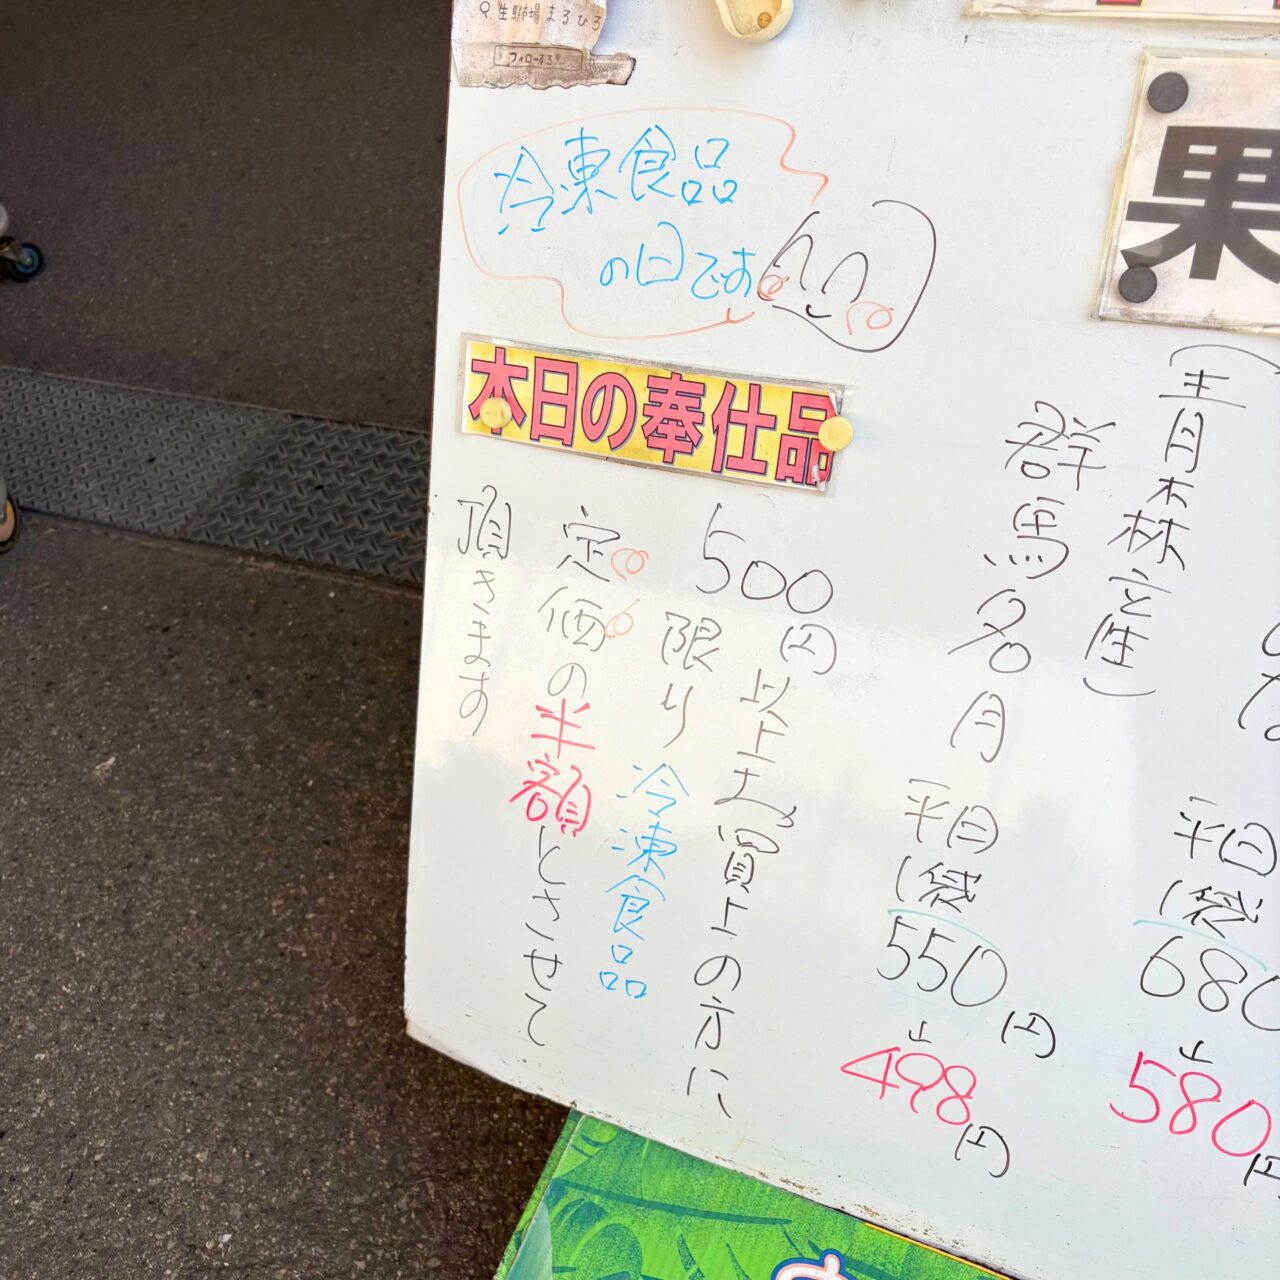 生鮮市場まるひろ
フォローする
冷凍食品
の日です
本日の奉仕品
果
(青森産)
群馬名月
平日
1袋
550円
↓
498円
平日
1袋
680
↓
580円
500円以上お買上の方に
限り冷凍食品
定価の半額とさせて
頂きます